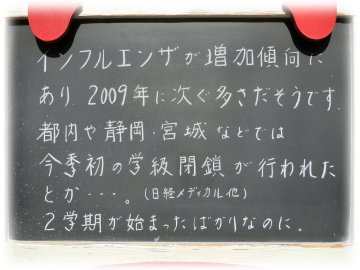 インフルエンザが増加傾向に
あり、2009年に次ぐ多さだそうです。
都内や静岡・宮城などでは
今季初の学級閉鎖が行われた
とか・・・。(日経メディカル他)
2学期が始まったばかりなのに。